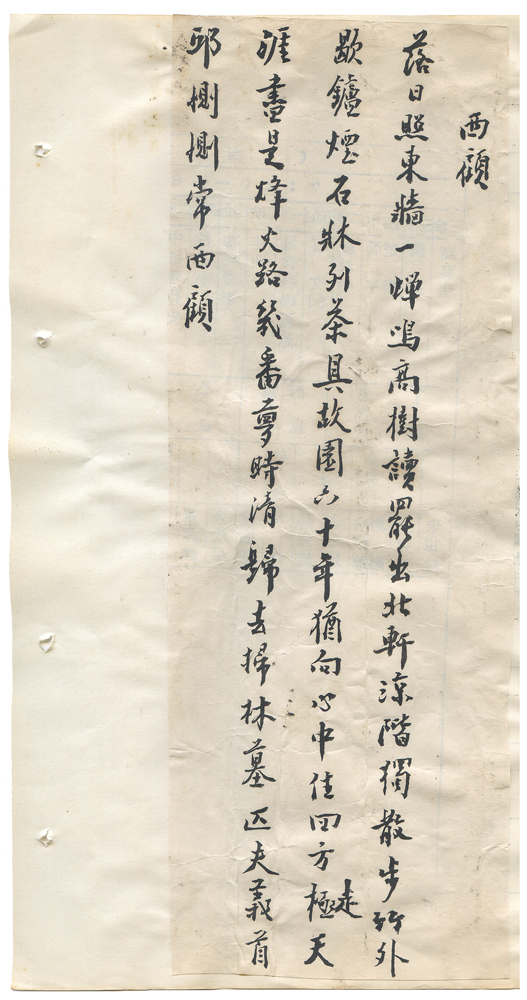 西顧
落日照東牆一蟬鳴高樹讀罷出北軒涼階獨散步竹外
歇鑪煙石牀列茶具故園六十年猶向心中住四方極走天
涯盡是烽火路幾番夢時清歸去掃林墓匹夫義首
邱惻惻常西顧